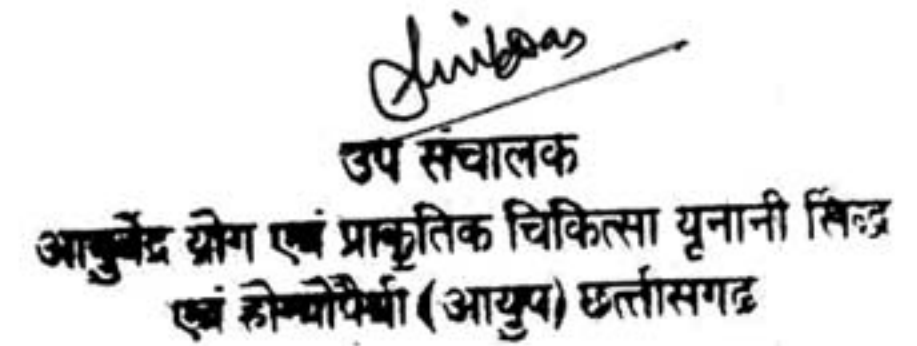 उप संचालक
आयुर्वेद योग एवं प्राकृतिक चिकित्सा यूनानी सिद्ध
एवं होम्योपैथी (आयुष) छत्तीसगढ़